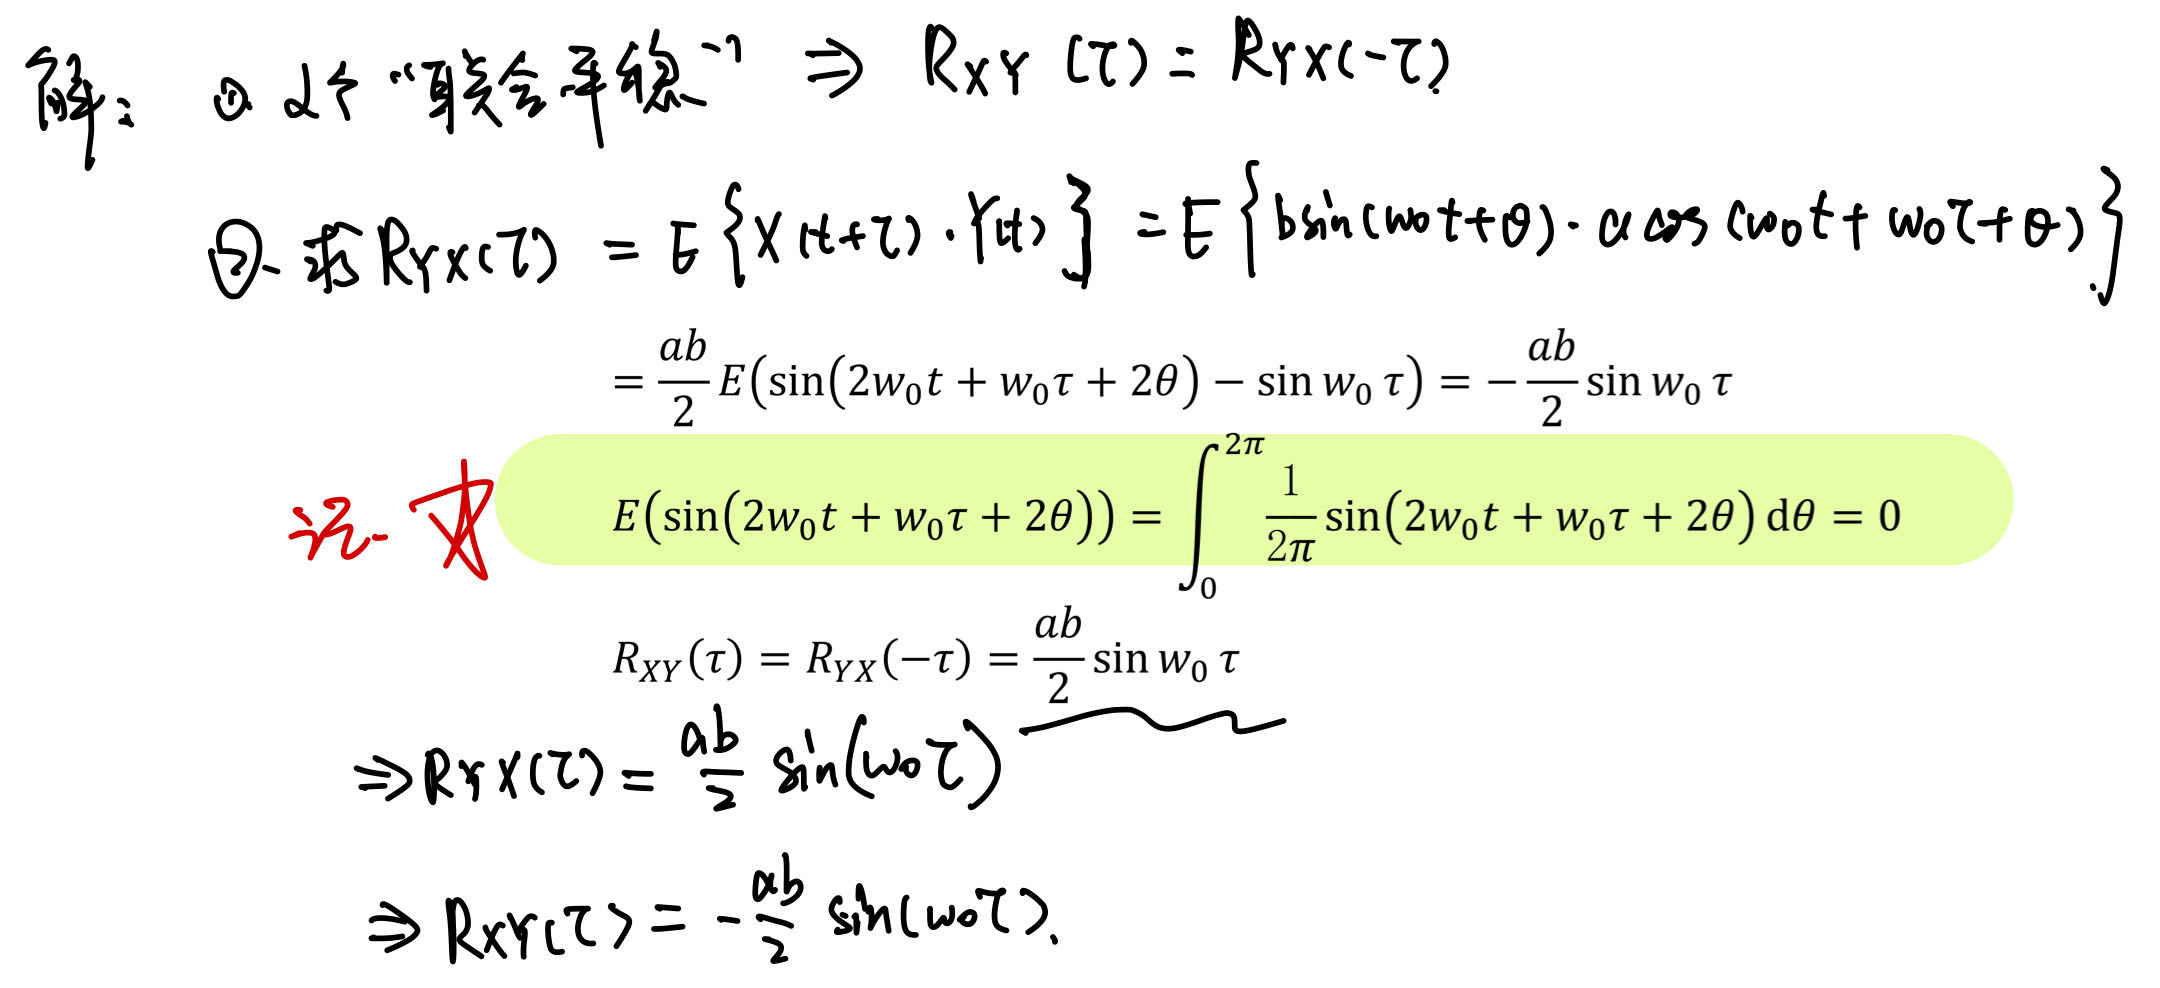 解: ①. 2个“联合平稳” ⇒ R_{XY}(τ) = R_{YX}(-τ).
②. 求R_{YX}(τ) = E{X(t+τ)·Y(t)} = E{b sin(w₀t+θ)·a cos(w₀t+w₀τ+θ)}.
= \frac{ab}{2} E(sin(2w₀t + w₀τ + 2θ) − sin w₀ τ) = −\frac{ab}{2} sin w₀ τ
记. ☆ E(sin(2w₀t + w₀τ + 2θ)) = ∫_0^{2π} \frac{1}{2π} sin(2w₀t + w₀τ + 2θ) dθ = 0
R_{XY}(τ) = R_{YX}(−τ) = \frac{ab}{2} sin w₀ τ
⇒ R_{YX}(τ) = \frac{ab}{2} sin(w₀τ)
⇒ R_{XY}(τ) = -\frac{ab}{2} sin(w₀τ).